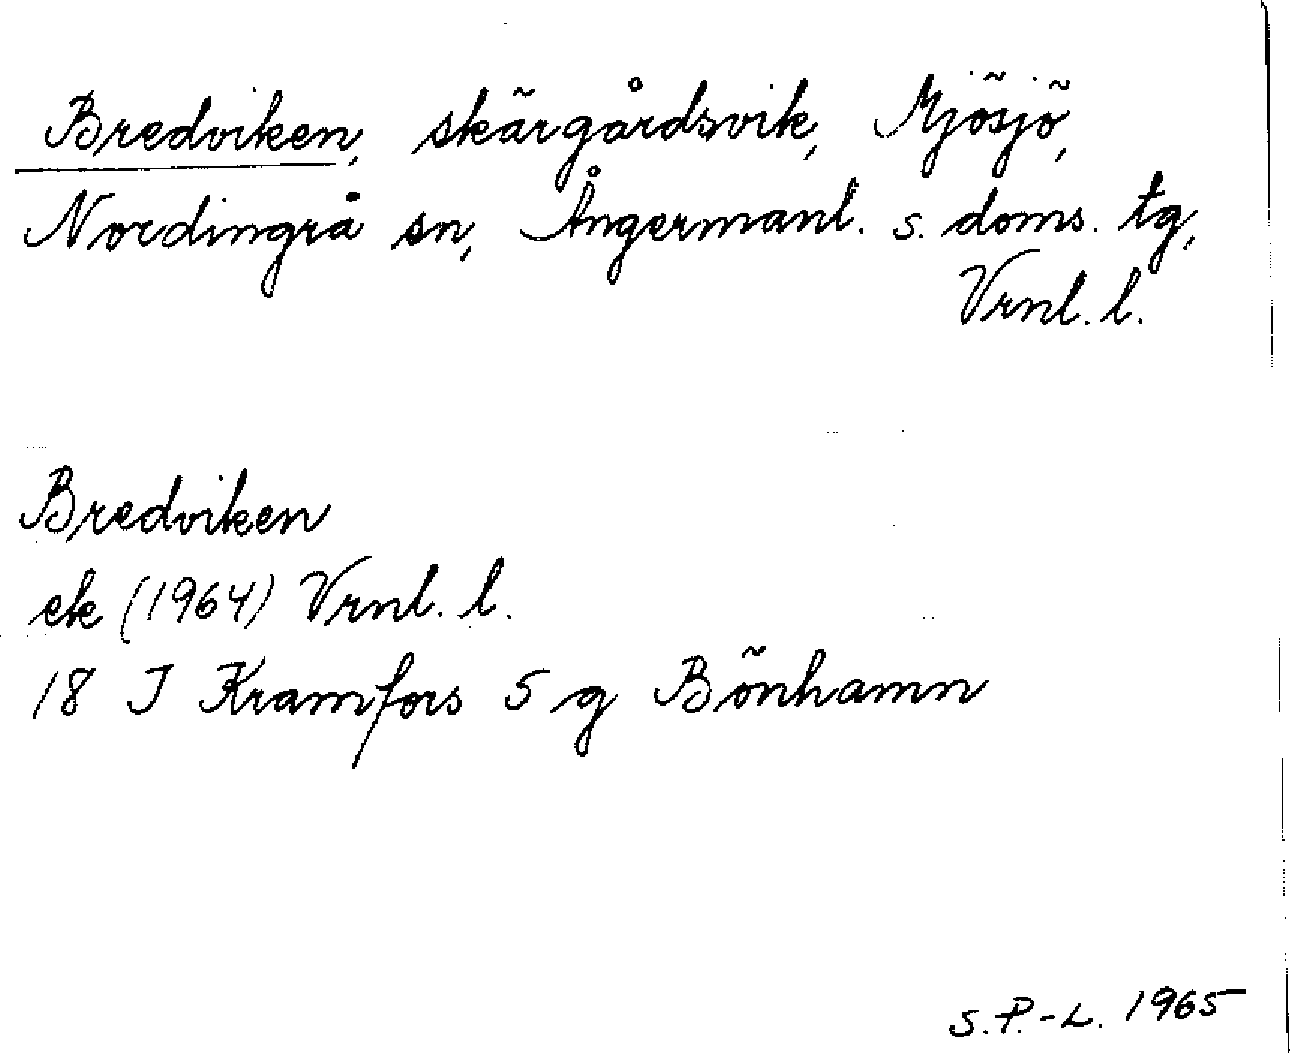 Bredviken, skärgårdsvik, Mjösjö,
Nordingrå sn, Ångermanl. s. doms. tg,
Vrnl. l.
Bredviken
ek (1964) Vrnl. l.
18 J Kramfors 5 g Bönhamn
S.P.-L. 1965